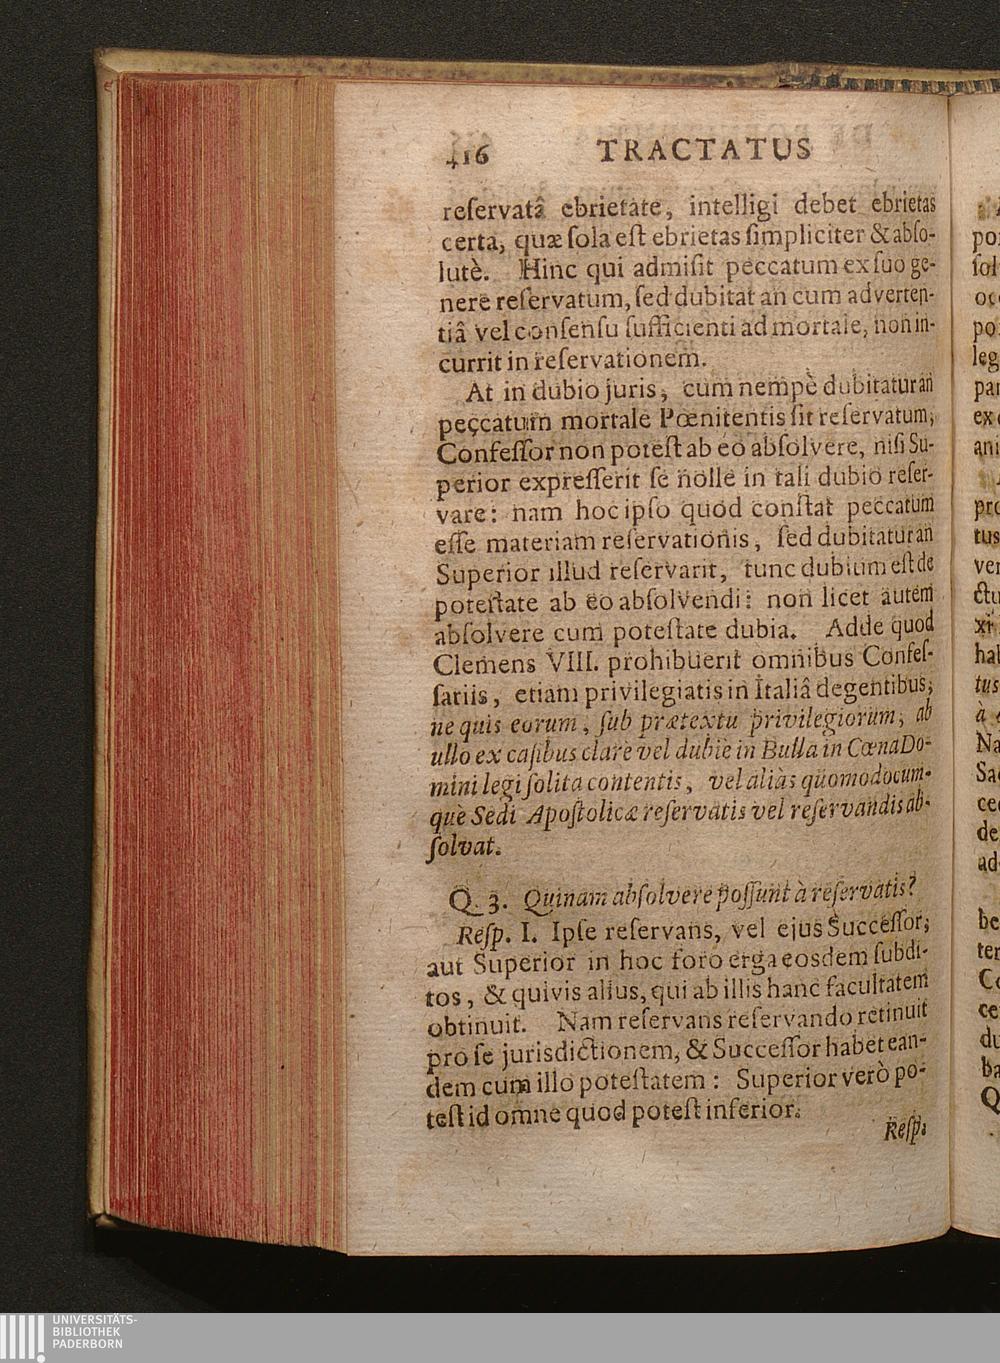 416 TRACTATUS
reſervatâ ebrietate, intelligi debet ebrietas
certa, quæ ſola eſt ebrietas ſimpliciter & abſo-
lutè. Hinc qui admiſit peccatum ex ſuo ge-
nere reſervatum, ſed dubitat an cum adverten-
tiâ vel conſenſu ſufficienti ad mortale, non in-
currit in reſervationem.
At in dubio juris, cum nempè dubitatur an
peccatum mortale Pœnitentis ſit reſervatum,
Confeſſor non poteſt ab eo abſolvere, niſi Su-
perior expreſſerit ſe nolle in tali dubio reſer-
vare: nam hoc ipſo quod conſtat peccatum
eſſe materiam reſervationis, ſed dubitatur an
Superior illud reſervarit, tunc dubium eſt de
poteſtate ab eo abſolvendi: non licet autem
abſolvere cum poteſtate dubia. Adde quod
Clemens VIII. prohibuerit omnibus Confeſ-
ſariis, etiam privilegiatis in Italiâ degentibus,
ne quis eorum, ſub prætextu privilegiorum, ab
ullo ex caſibus clare vel dubie in Bulla in Cœna Do-
mini legi ſolita contentis, vel aliàs quomodocum-
que Sedi Apoſtolicæ reſervatis vel reſervandis ab-
ſolvat.
Q. 3. Quinam abſolvere poſſunt à reſervatis?
Reſp. I. Ipſe reſervans, vel ejus Succeſſor,
aut Superior in hoc foro erga eosdem ſubdi-
tos, & quivis alius, qui ab illis hanc facultatem
obtinuit. Nam reſervans reſervando retinuit
pro ſe jurisdictionem, & Succeſſor habet ean-
dem cum illo poteſtatem: Superior verò po-
teſt id omne quod poteſt inferior.
Reſp.
UNIVERSITÄTS-
BIBLIOTHEK
PADERBORN